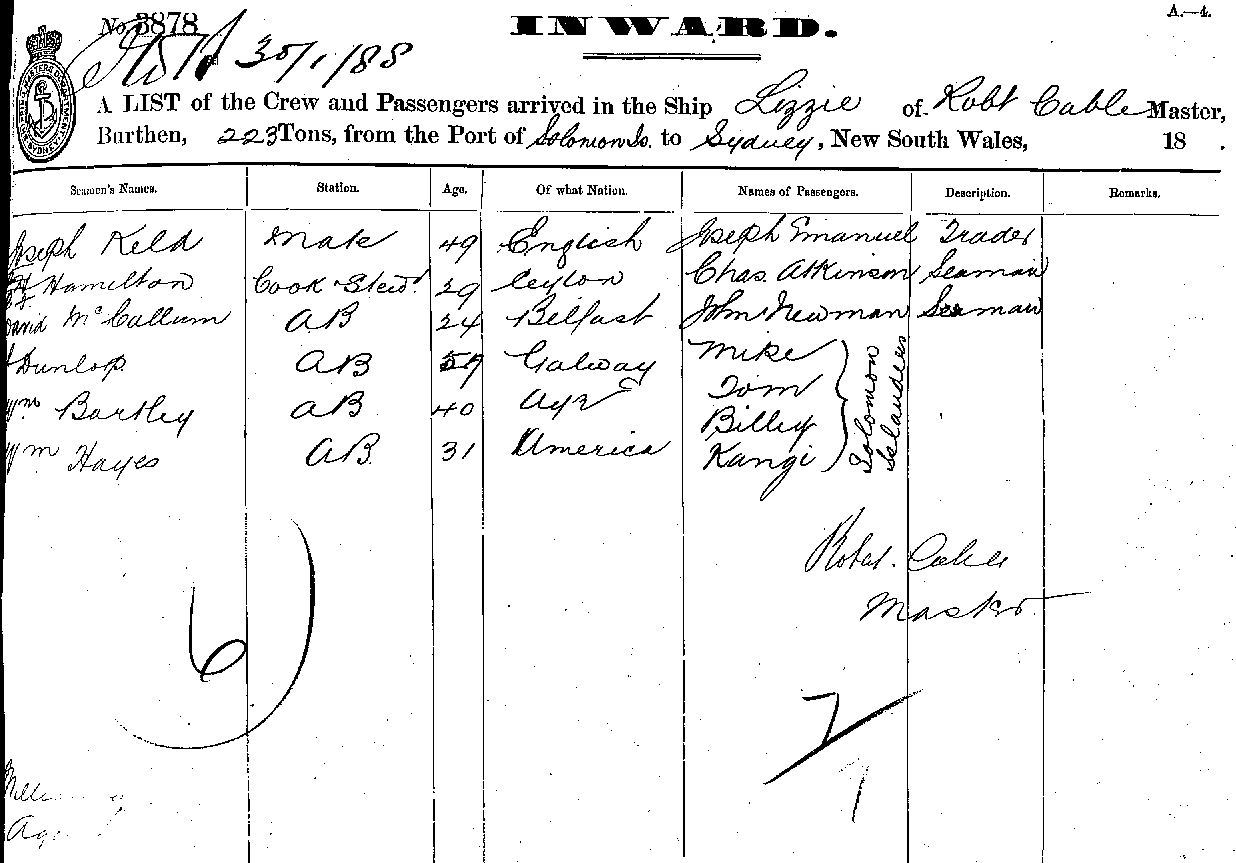 No. 3878
INWARD.
A.—4.
30/1/88
A LIST of the Crew and Passengers arrived in the Ship Lizzie of Robt Cable Master,
Burthen, 223 Tons, from the Port of Solomon Is. to Sydney, New South Wales, 18 .
Seamen's Names. Station. Age. Of what Nation. Names of Passengers. Description. Remarks.
Joseph Keld Mate 49 English Joseph Emanuel Trader
Hamilton Cook & Stewd. 29 Ceylon Chas. Atkinson Seaman
David McCallum AB 24 Belfast John Newman Seaman
Dunlop AB 59 Galway Mike
Wm Bartley AB 40 Ayr Tom
Billey
Wm Hayes AB. 31 America Kangi
Solomon Islanders
Robt. Cable
Master
6
7